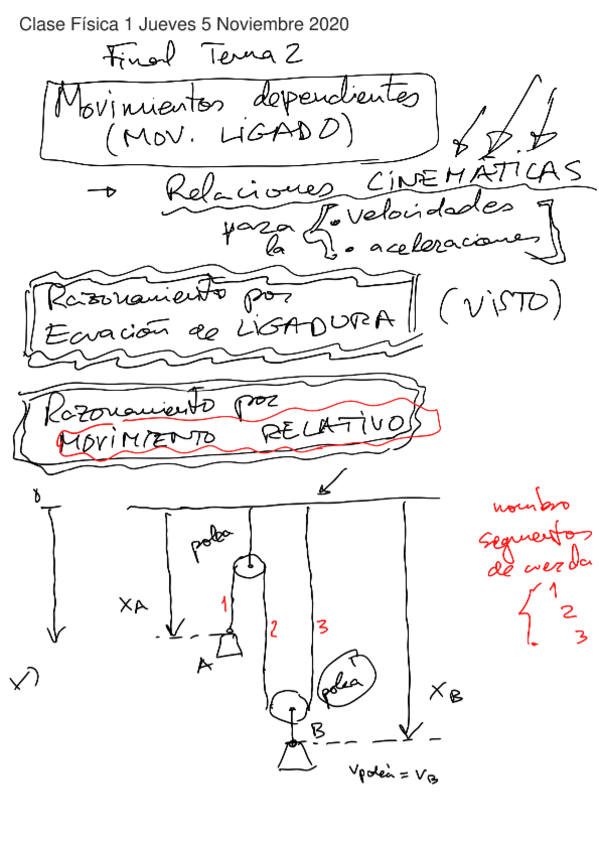 Clase Física 1 Jueves 5 Noviembre 2020
Final Tema 2
Movimientos dependientes
(MOV. LIGADO)
→ Relaciones CINEMÁTICAS
para la { • velocidades
• aceleraciones
Razonamiento por
Ecuación de LIGADURA
(VISTO)
Razonamiento por
MOVIMIENTO RELATIVO
polea
nombro
segmentos
de cuerda
{ 1
2
3
XA
1
2
3
A
polea
XB
B
Vpolea = VB